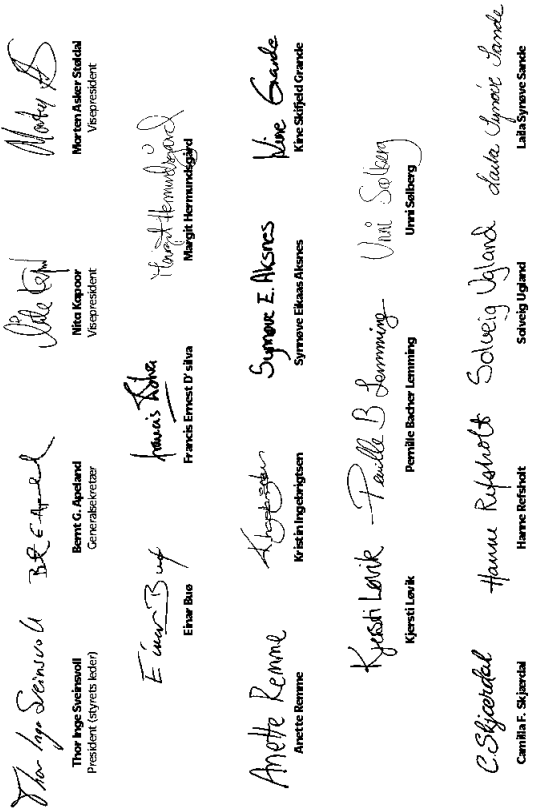 Thor Inge Sveinsvoll
Thor Inge Sveinsvoll
President (styrets leder)
Bernt G. Apeland
Generalsekretær
Nita Kapoor
Visepresident
Morten Asker Støldal
Visepresident
Einar Buø
Einar Buø
Francis
Francis Ernest D' silva
Margit Hermundsgård
Margit Hermundsgård
Anette Remme
Anette Remme
K Ingebrigtsen
Kristin Ingebrigtsen
Synnøve E. Aksnes
Synnøve Eikaas Aksnes
Kine Grande
Kine Skifjeld Grande
Kjersti Løvik
Kjersti Løvik
Pernille B Lemming
Pernille Bacher Lemming
Unni Sølberg
Unni Sølberg
C. Skjærdal
Camilla F. Skjærdal
Hanne Refsholt
Hanne Refsholt
Solveig Ugland
Solveig Ugland
Laila Synøve Sande
Laila Synøve Sande